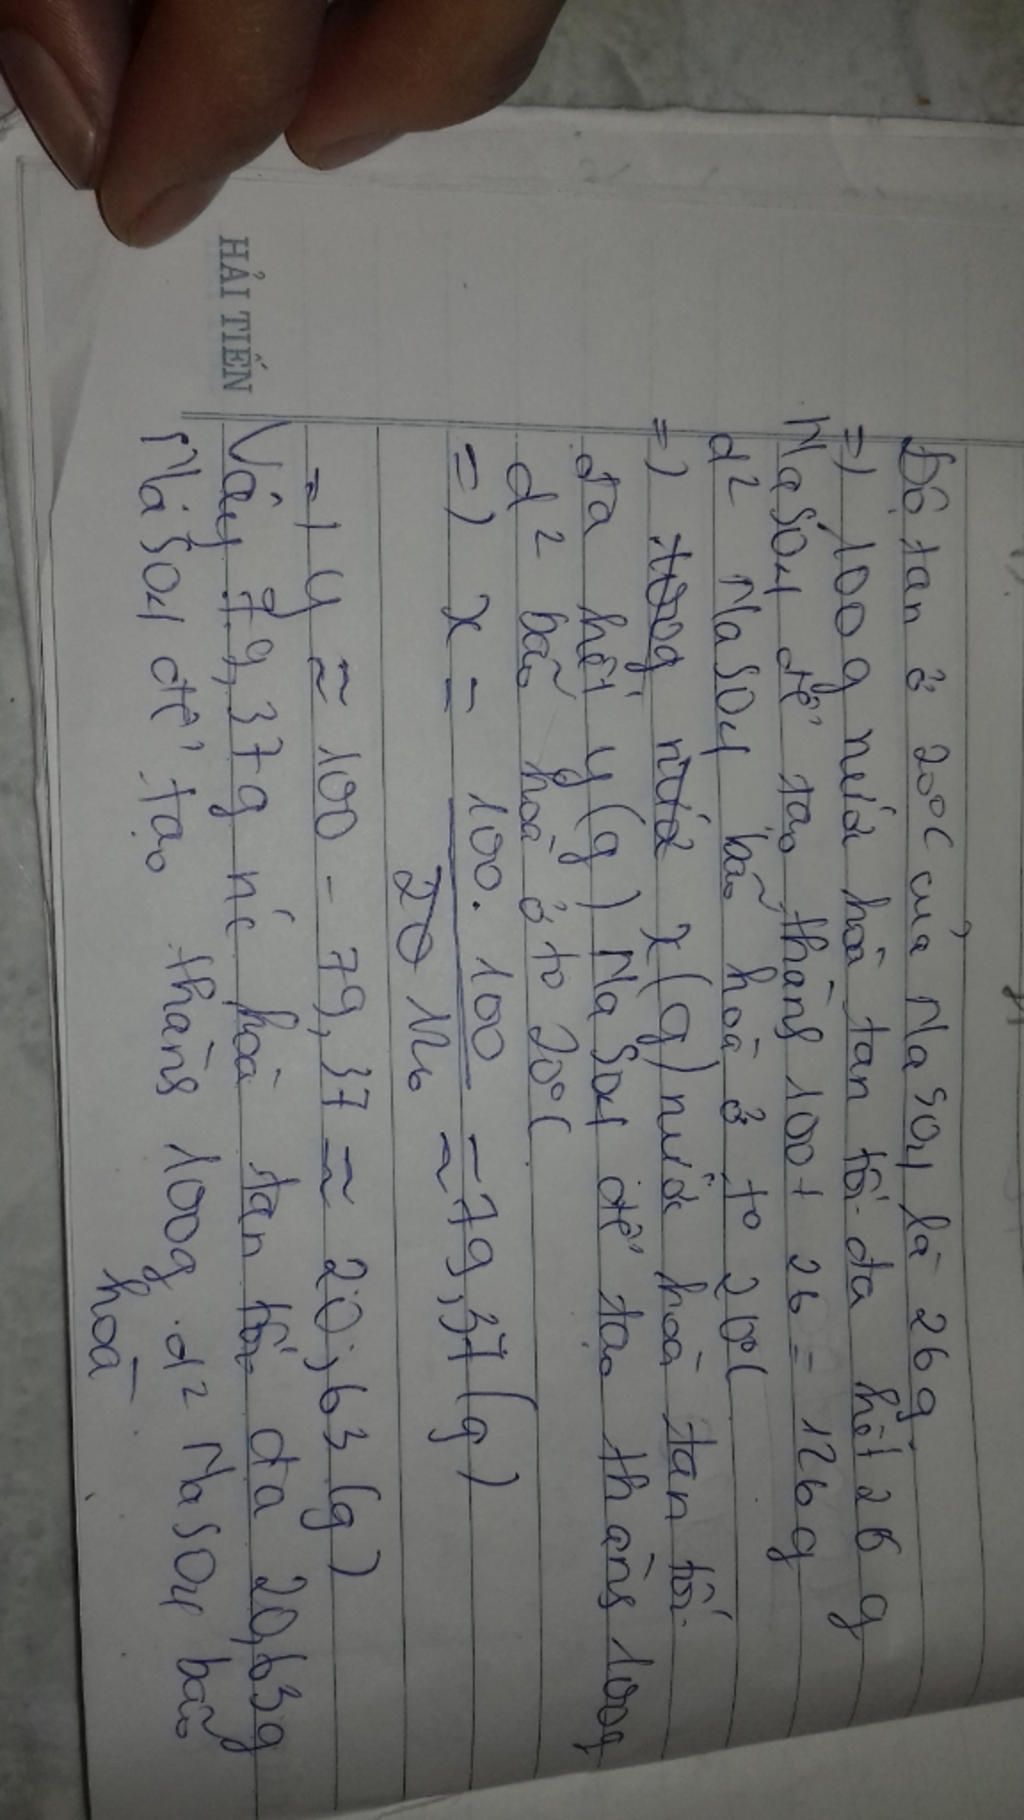 HẢI TIẾN
Độ tan ở 20°C của NaSO4 là 26g
=) 100g nước hoà tan tối đa hết 26 g
NaSO4 để tạo thành 100+ 26 = 126g
d² NaSO4 bão hoà ở to 20°C
=) 100g nước x(g) nước hoà tan tối
đa hết y(g) NaSO4 để tạo thành 100g
d² bão hoà ở to 20°C
=) x = 100.100 / 20 126 ≈ 79,37(g)
=) y ≈ 100 - 79,37 ≈ 20,63(g)
Vậy 79,37g nc hoà tan tối đa 20,63g
NaSO4 để tạo thành 100g d² NaSO4 bão
hoà